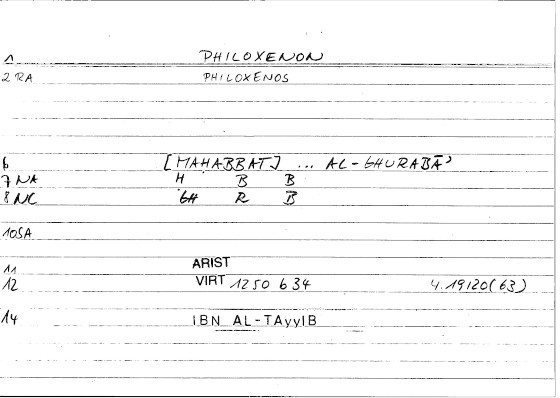 1 PHILOXENON
2 RA PHILOXENOS
6 [MAHABBAT] ... AL-GHURABĀ'
7 NA H B B
8 NC GH R B
10 SA
11 ARIST
12 VIRT 1250 b 34 4.19120(63)
14 IBN AL-TAyyIB